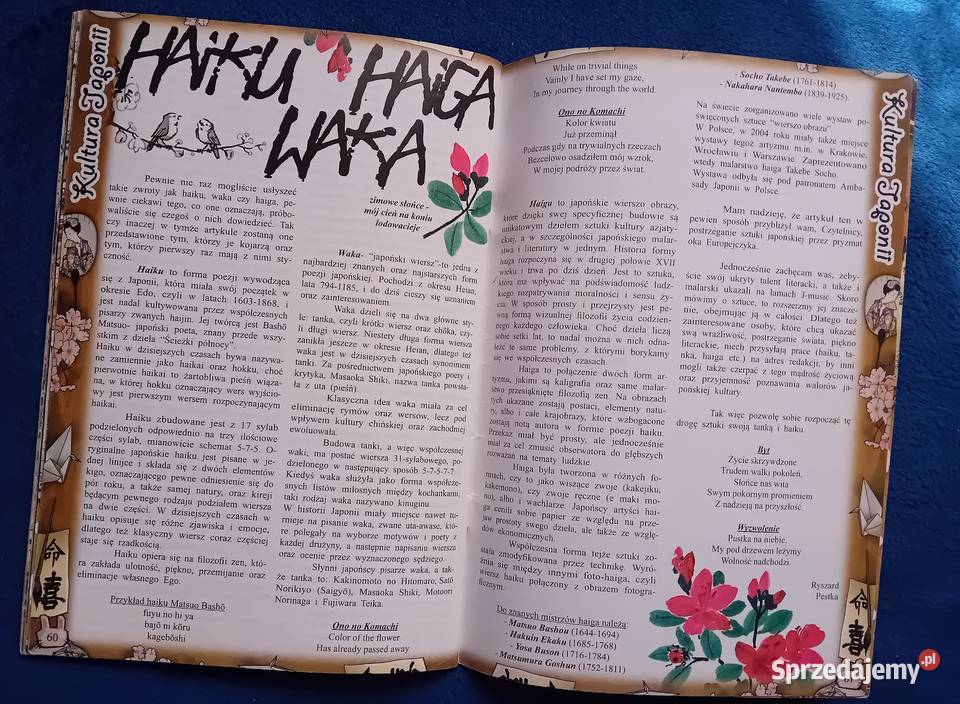 Kultura Japonii
HAiKU HAiGA
WAKA
Pewnie nie raz mogliście usłyszeć
takie zwroty jak haiku, waka czy haiga, pe-
wnie ciekawi tego, co one oznaczają, próbo-
waliście się czegoś o nich dowiedzieć. Tak
czy inaczej w tymże artykule zostaną one
przedstawione tym, którzy je kojarzą oraz
tym, którzy pierwszy raz mają z nimi sty-
czność.
Haiku to forma poezji wywodząca
się z Japonii, która miała swój początek w
okresie Edo, czyli w latach 1603-1868, i
jest nadal kultywowana przez współczesnych
pisarzy zwanych haijin. Jej twórcą jest Bashō
Matsuo- japoński poeta, znany przede wszy-
stkim z dzieła “Ścieżki północy”.
Haiku w dzisiejszych czasach bywa nazywa-
ne zamiennie jako haikai oraz hokku, choć
pierwotnie haikai to żartobliwa pieśń wiąza-
na, w której hokku oznaczający wers wyjścio-
wy jest pierwszym wersem rozpoczynającym
haikai.
Haiku zbudowane jest z 17 sylab
podzielonych odpowiednio na trzy ilościowe
części sylab, mianowicie schemat 5-7-5. O-
ryginalne japońskie haiku jest pisane w je-
dnej linijce i składa się z dwóch elementów
kigo, oznaczającego pewne odniesienie się do
pór roku, a także samej natury, oraz kireji
będącym pewnego rodzaju podziałem wiersza
na dwie części. W dzisiejszych czasach w
haiku opisuje się różne zjawiska i emocje,
dlatego też klasyczny wiersz coraz częściej
staje się rzadkością.
Haiku opiera się na filozofii zen, któ-
ra zakłada ulotność, piękno, przemijanie oraz
eliminacje własnego Ego.
Przykład haiku Matsuo Bashō
fuyu no hi ya
bajō ni kōru
kagebōshi
60
zimowe słońce -
mój cień na koniu
lodowacieje
Waka- “japoński wiersz”-to jedna z
najbardziej znanych oraz najstarszych form
poezji japońskiej. Pochodzi z okresu Heian,
lata 794-1185, i do dziś cieszy się uznaniem
oraz zainteresowaniem.
Waka dzieli się na dwa główne sty-
le: tanka, czyli krótki wiersz oraz chōka, czy-
li długi wiersz. Niestety długa forma wiersza
zanikła jeszcze w okresie Heian, dlatego też
waka jest w dzisiejszych czasach synonimem
tanki. Za pośrednictwem japońskiego poety i
krytyka, Masaoka Shiki, nazwa tanka powsta-
ła z uta (pieśń).
Klasyczna idea waka miała za cel
eliminację rymów oraz wersów, lecz pod
wpływem kultury chińskiej oraz zachodniej
ewoluowała.
Budowa tanki, a więc współczesnej
waki, ma postać wiersza 31-sylabowego, po-
dzielonego w następujący sposób 5-7-5-7-7.
Kiedyś waka służyła jako forma współcze-
snych listów miłosnych między kochankami,
taki rodzaj waka nazywano kinuginu.
W historii Japonii miały miejsce nawet tu-
rnieje na pisanie waka, zwane uta-awase, któ-
re polegały na wyborze motywów i poety z
każdej drużyny, a następnie napisaniu wiersza
oraz ocenie przez wyznaczonego sędziego.
Słynni japońscy pisarze waka, a tak-
że tanka to: Kakinomoto no Hitomaro, Satō
Norikiyo (Saigyō), Masaoka Shiki, Motoori
Norinaga i Fujiwara Teika.
Ono no Komachi
Color of the flower
Has already passed away
While on trivial things
Vainly I have set my gaze,
In my journey through the world.
Ono no Komachi
Kolor kwiatu
Już przeminął
Podczas gdy na trywialnych rzeczach
Bezcelowo osadziłem mój wzrok,
W mojej podróży przez świat.
Haiga to japońskie wierszo obrazy,
które dzięki swej specyficznej budowie są
unikatowym dziełem sztuki kultury azjaty-
ckiej, a w szczególności japońskiej malar-
stwa i literatury w jednym. Historia formy
haiga rozpoczyna się w drugiej połowie XVII
wieku i trwa po dziś dzień. Jest to sztuka,
która ma wpływać na podświadomość ludz-
kiego rozpatrywania moralności i sensu ży-
cia. W sposób prosty i przejrzysty jest pe-
wną formą wizualnej filozofii życia codzien-
nego każdego człowieka. Choć dziela liczą
sobie setki lat, to nadal można w nich odna-
leźć te same problemy, z którymi borykamy
się we współczesnych czasach.
Haiga to połączenie dwóch form ar-
tyzmu, jakimi są kaligrafia oraz same malar-
stwo przesiąknięte filozofią zen. Na obrazach
tych ukazane zostają postaci, elementy natu-
ry, albo i całe krajobrazy, które wzbogacone
zostają notą autora w formie poezji haiku.
Przekaz miał być prosty, ale jednocześnie
miał za cel zmusić obserwatora do głębszych
rozważań na tematy ludzkie.
Haiga była tworzona w różnych fo-
rmach, czy to jako wiszące zwoje (kakejiku,
kakemono), czy zwoje ręczne (e maki mo-
no), albo i wachlarze. Japońscy artyści hai-
ga cenili sobie papier ze względu na prze-
jaw prostoty swego dzieła, ale także ze wzglę-
dów ekonomicznych.
Współczesna forma tejże sztuki zo-
stała zmodyfikowana przez technikę. Wyró-
żnia się między innymi foto-haiga, czyli
wiersz haiku połączony z obrazem fotogra-
ficznym.
Do znanych mistrzów haiga należą:
- Matsuo Bashou (1644-1694)
- Hakuin Ekaku (1685-1768)
- Yosa Buson (1716-1784)
- Matsumura Goshun (1752-1811)
- Socho Takebe (1761-1814)
- Nakahara Nantembo (1839-1925).
Na świecie zorganizowano wiele wystaw po-
święconych sztuce “wierszo obrazu”.
W Polsce, w 2004 roku miały także miejsce
wystawy tegoż artyzmu m.in. w Krakowie,
Wrocławiu i Warszawie. Zaprezentowano
wtedy malarstwo haiga Takebe Socho.
Wystawa odbyła się pod patronatem Amba-
sady Japonii w Polsce.
Mam nadzieję, że artykuł ten w
pewien sposób przybliżył wam, Czytelnicy,
postrzeganie sztuki japońskiej przez pryzmat
oka Europejczyka.
Jednocześnie zachęcam was, żeby-
ście swój ukryty talent literacki, a także i
malarski ukazali na łamach J-music. Skoro
mówimy o sztuce, to rozszerzmy jej znacze-
nie, obejmując ją w całości. Dlatego też
zainteresowane osoby, które chcą ukazać
swą wrażliwość, postrzeganie świata, piękno
literackie, niech przysyłają prace (haiku, ta-
nka, haiga etc.) na adres redakcji, by inni
mogli także czerpać z tego mądrość życiową
oraz przyjemność poznawania walorów ja-
pońskiej kultury.
Tak więc pozwolę sobie rozpocząć tę
drogę sztuki swoją tanką i haiku.
Byt
Życie skrzywdzone
Trudem walki pokoleń,
Słońce nas wita
Swym pokornym promieniem
Z nadzieją na przyszłość.
Wyzwolenie
Pustka na niebie,
My pod drzewem leżymy
Wolność nadchodzi
Ryszard
Pestka
Kultura Japonii
命
喜
命
喜
61
Sprzedajemy.pl